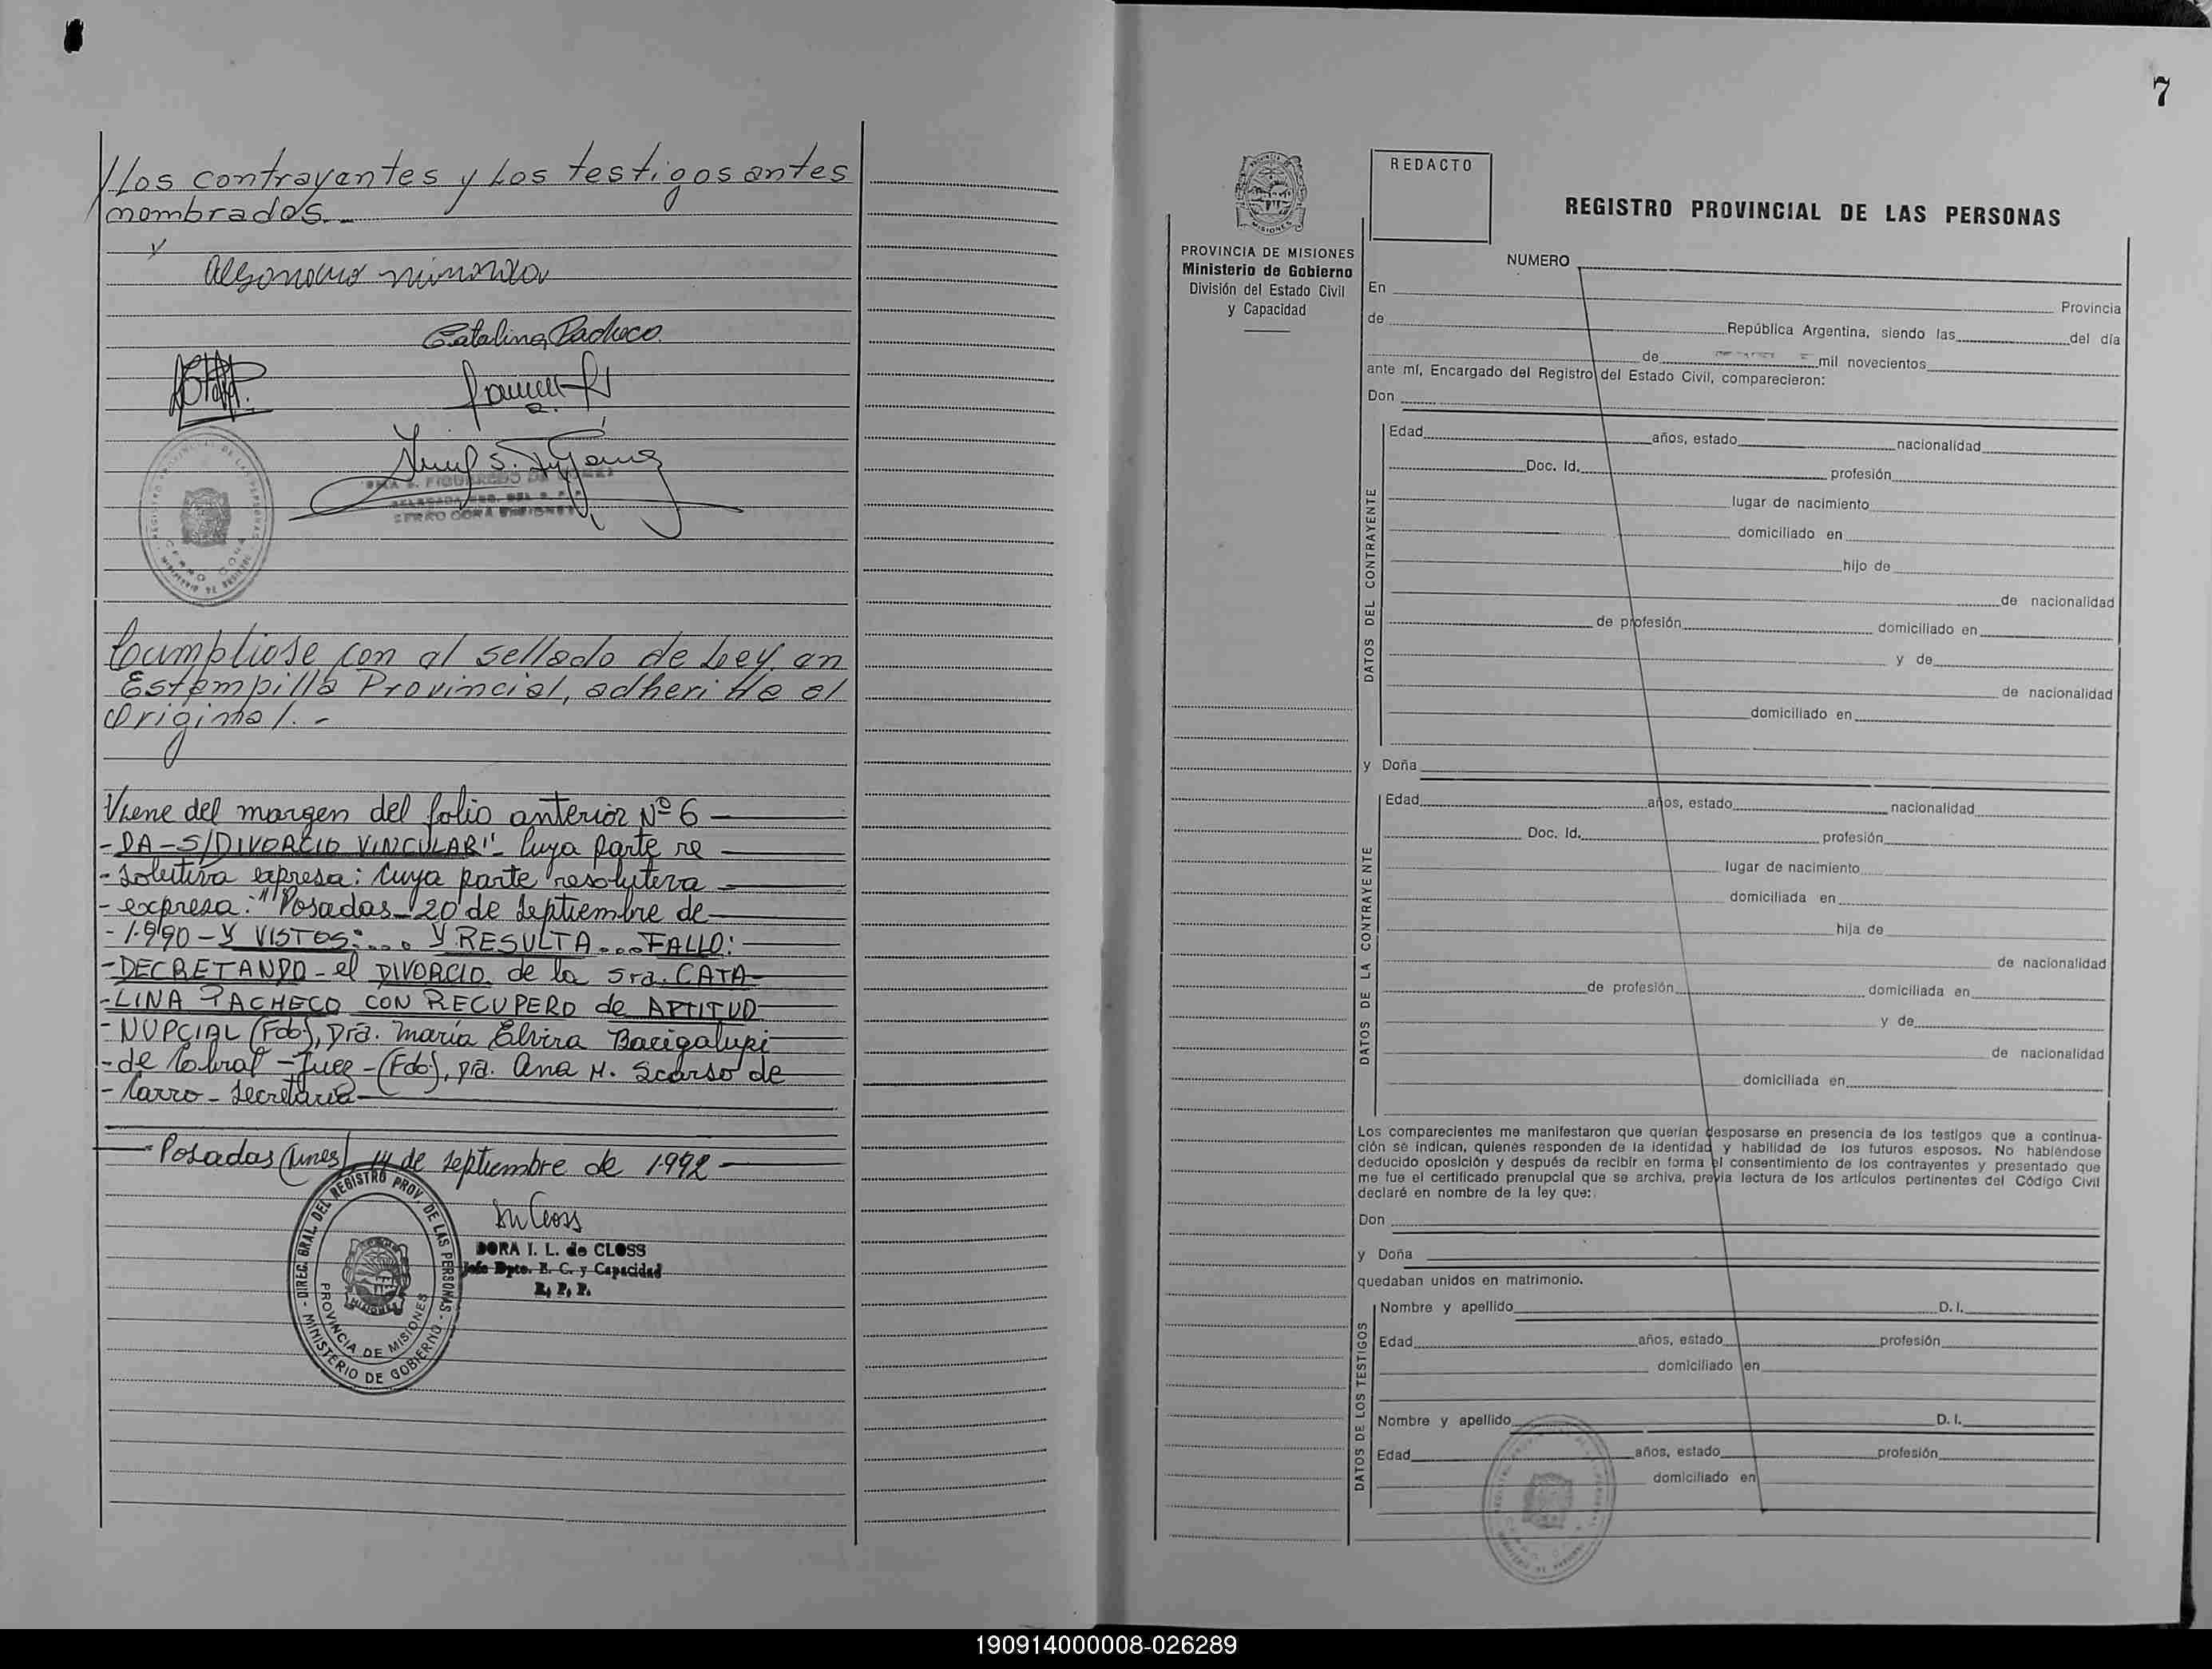 //los contrayentes y los testigos antes
nombrados.-
Catalina Pacheco
CERRO CORA MISIONES
Cumpliose con el sellado de Ley en
Estampilla Provincial, adherida al
Original.-
Viene del margen del folio anterior Nº 6 —
-DA-S/DIVORCIO VINCULAR"- Cuya parte re —
- solutiva expresa: Cuya parte resolutiva —
- expresa: "Posadas-20 de septiembre de —
- 1.990 - Y VISTOS:... Y RESULTA...FALLO: —
-DECRETANDO - el DIVORCIO de la Sra. CATA-
-LINA PACHECO CON RECUPERO de APTITUD —
- NUPCIAL (Fdo.), Dra. María Elvira Bacigalupi
-de Cobral -Juez -(Fdo.), Dra. Ana M. Scarso de
- Carro - Secretaria —
— Posadas (Lunes) 14 de septiembre de 1.992 —
DORA I. L. de CLOSS
Jefe Dpto. E. C. y Capacidad
R. P. P.
DIREC. GRAL. DEL REGISTRO PROV. DE LAS PERSONAS - MINISTERIO DE GOBIERNO -
PROVINCIA DE MISIONES
MISIONES
7
PROVINCIA DE MISIONES
Ministerio de Gobierno
División del Estado Civil
y Capacidad
REDACTO
REGISTRO PROVINCIAL DE LAS PERSONAS
NUMERO
En Provincia
de República Argentina, siendo las del día
de mil novecientos
ante mí, Encargado del Registro del Estado Civil, comparecieron:
Don
DATOS DEL CONTRAYENTE
Edad años, estado nacionalidad
Doc. Id. profesión
lugar de nacimiento
domiciliado en
hijo de
de nacionalidad
de profesión domiciliado en
y de
de nacionalidad
domiciliado en
y Doña
DATOS DE LA CONTRAYENTE
Edad años, estado nacionalidad
Doc. Id. profesión
lugar de nacimiento
domiciliada en
hija de
de nacionalidad
de profesión domiciliada en
y de
de nacionalidad
domiciliada en
Los comparecientes me manifestaron que querían desposarse en presencia de los testigos que a continua-
ción se indican, quienes responden de la identidad y habilidad de los futuros esposos. No habiéndose
deducido oposición y después de recibir en forma el consentimiento de los contrayentes y presentado que
me fue el certificado prenupcial que se archiva, previa lectura de los artículos pertinentes del Código Civil
declaré en nombre de la ley que:
Don
y Doña
quedaban unidos en matrimonio.
DATOS DE LOS TESTIGOS
Nombre y apellido D. I.
Edad años, estado profesión
domiciliado en
Nombre y apellido D. I.
Edad años, estado profesión
domiciliado en
190914000008-026289